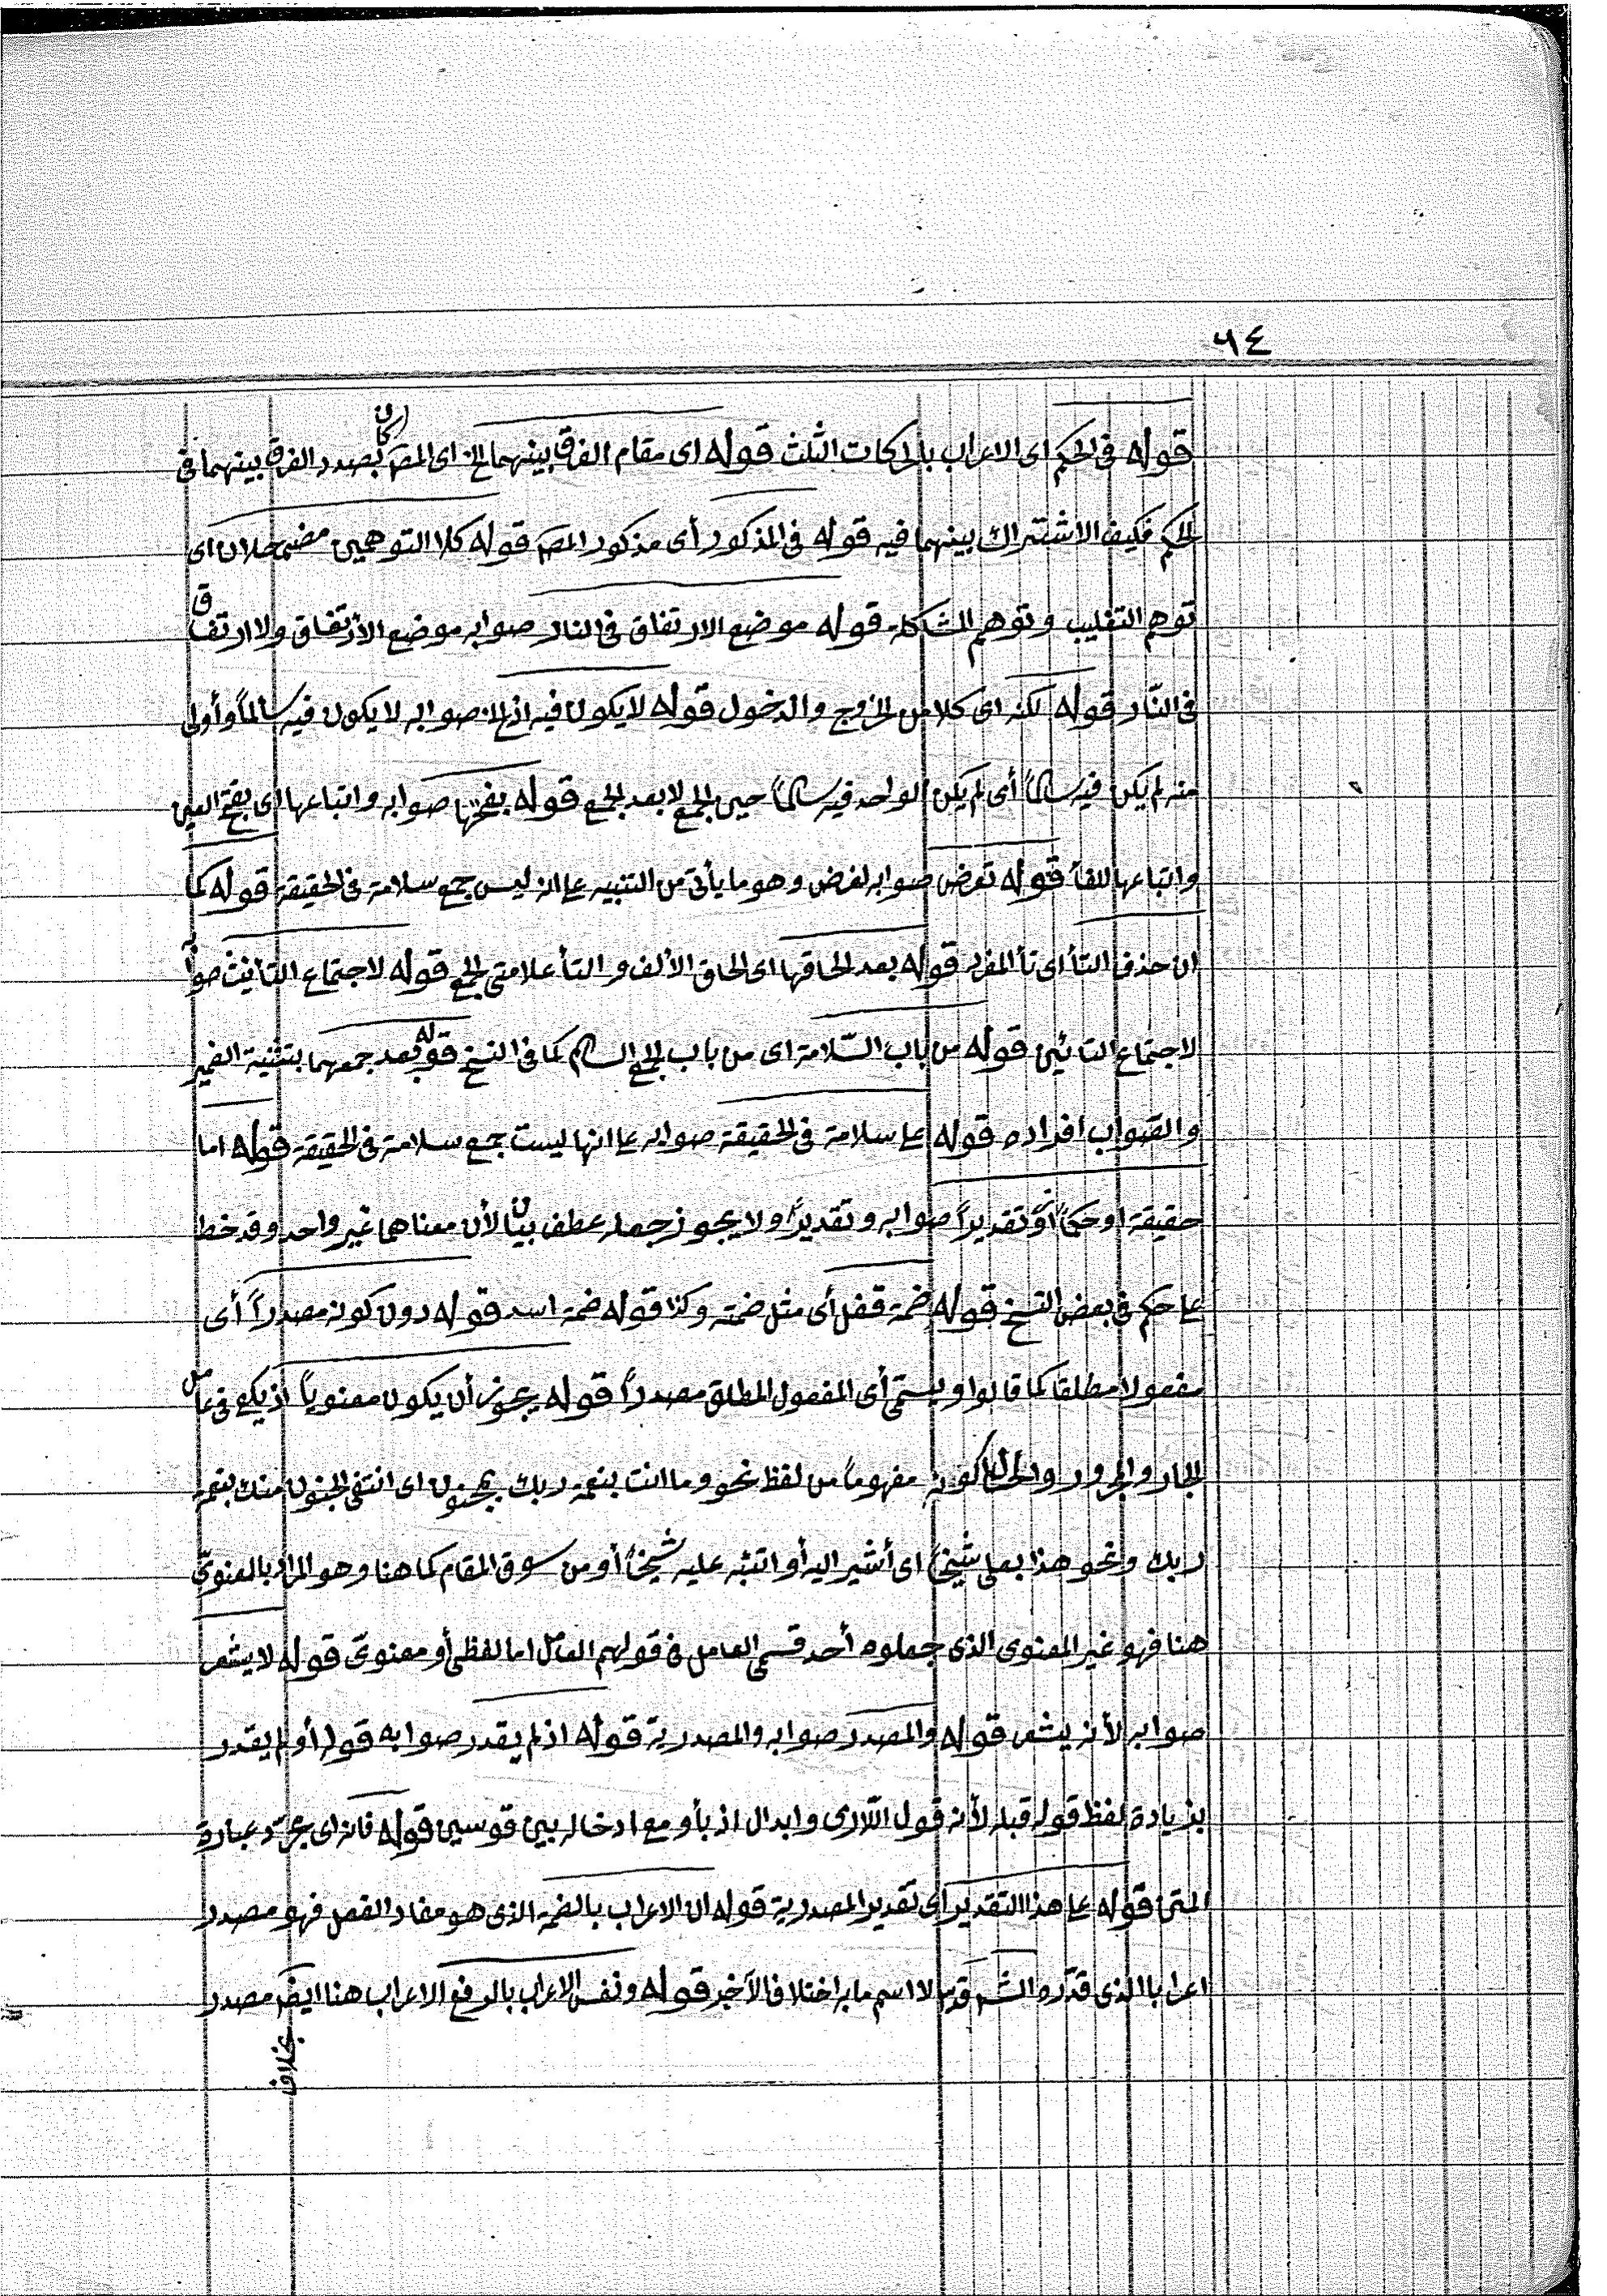 ٩٤
قوله فى الحكم اى الاعراب بالحركات الثلث قوله اى مقام الفرق بينهما الخ اى المصَ كان بصدد الفرق بينهما فى
الحكم فكيف الاشتراك بينهما فيه قوله فى المذكور أى مذكور المصَ قوله كلا التوهمين مضمحلان اى
توهم التغليب وتوهم المشاكلة قوله موضع الارتفاق فى النار صوابه موضع الأرتفاق ولا ارتفاق
فى النّار قوله لكنه اى كلا من الخروج والدخول قوله لا يكون فيه اذ الخ صوابه لا يكون فيه سالماً وأولى
منه لم يكن فيه سالماً أى لم يكن الواحد فيه سالماً حين الجمع لا بعد الجمع قوله بفتحها صوابه واتباعها اى بفتح العين
واتباعها للفأ قوله تعرض صوابه لغرض وهو ما يأتى من التنبيه عا انه ليس جمع سلامة فى الحقيقة قوله كما
ان حذف التأ اى تأ المفرد قوله بعد الحاقها اى الحاق الألف والتأ علامتى الجمع قوله لاجتماع التأنيث صوابه
لاجتماع التائين قوله من باب السّلامة اى من باب الجمع السالم كما فى النسخ قوله بعد جمعهما بتثنية الضمير
والصّواب افراده قوله عا سلامة فى الحقيقة صوابه عا انها ليست جمع سلامة فى الحقيقة قوله اما
حقيقة او حكماً أو تقديراً صوابه وتقديراً ولا يجوز جعله عطف بيان لأن معناهما غير واحد وقد خط
عا حكم فى بعض النسخ قوله ضمة قفل أى مثل ضمته وكذا قوله ضمة اسد قوله دون كونه مصدراً أى
مفعولا مطلقا كما قالوا ويسمّى أى المفعول المطلق مصدراً قوله يجوز أن يكون معنوياً اذ يكفى فى عامل
الجار والمجرور والحال كونه مفهوماً من لفظ نحو وما انت بنعمة ربك بمجنون اى انتفى الجنون منك بنعمة
ربك ونحو هذا بعلى شيخاً اى أشير اليه أو اتنبّه عليه شيخاً أو من سوق المقام كما هنا وهو المراد بالمعنوىّ
هنا فهو غير المعنوى الذى جعلوه أحد قسمى العامل فى قولهم العامل اما لفظى أو معنوىّ قوله لا يشعر
صوابه لأنه يشعر قوله والمصدر صوابه والمصدرية قوله اذ لم يقدر صوابه قوله أو لم يقدر
بزيادة لفظ قوله قبله لأنه قول اللّارى وابدال اذ بأو مع ادخاله بين قوسين قوله فانه اى مجرّد عبارة
المتن قوله عا هذا التقدير اى تقدير المصدرية قوله ان الاعراب بالضمة الذى هو مفاد الفعل فهو مصدر
اعرابا الذى قدّره الشَم قدس لا اسم ما به اختلاف الآخير قوله ونفس الإعراب بالرفع الاعراب هنا ايضَ مصدر
بخلاف